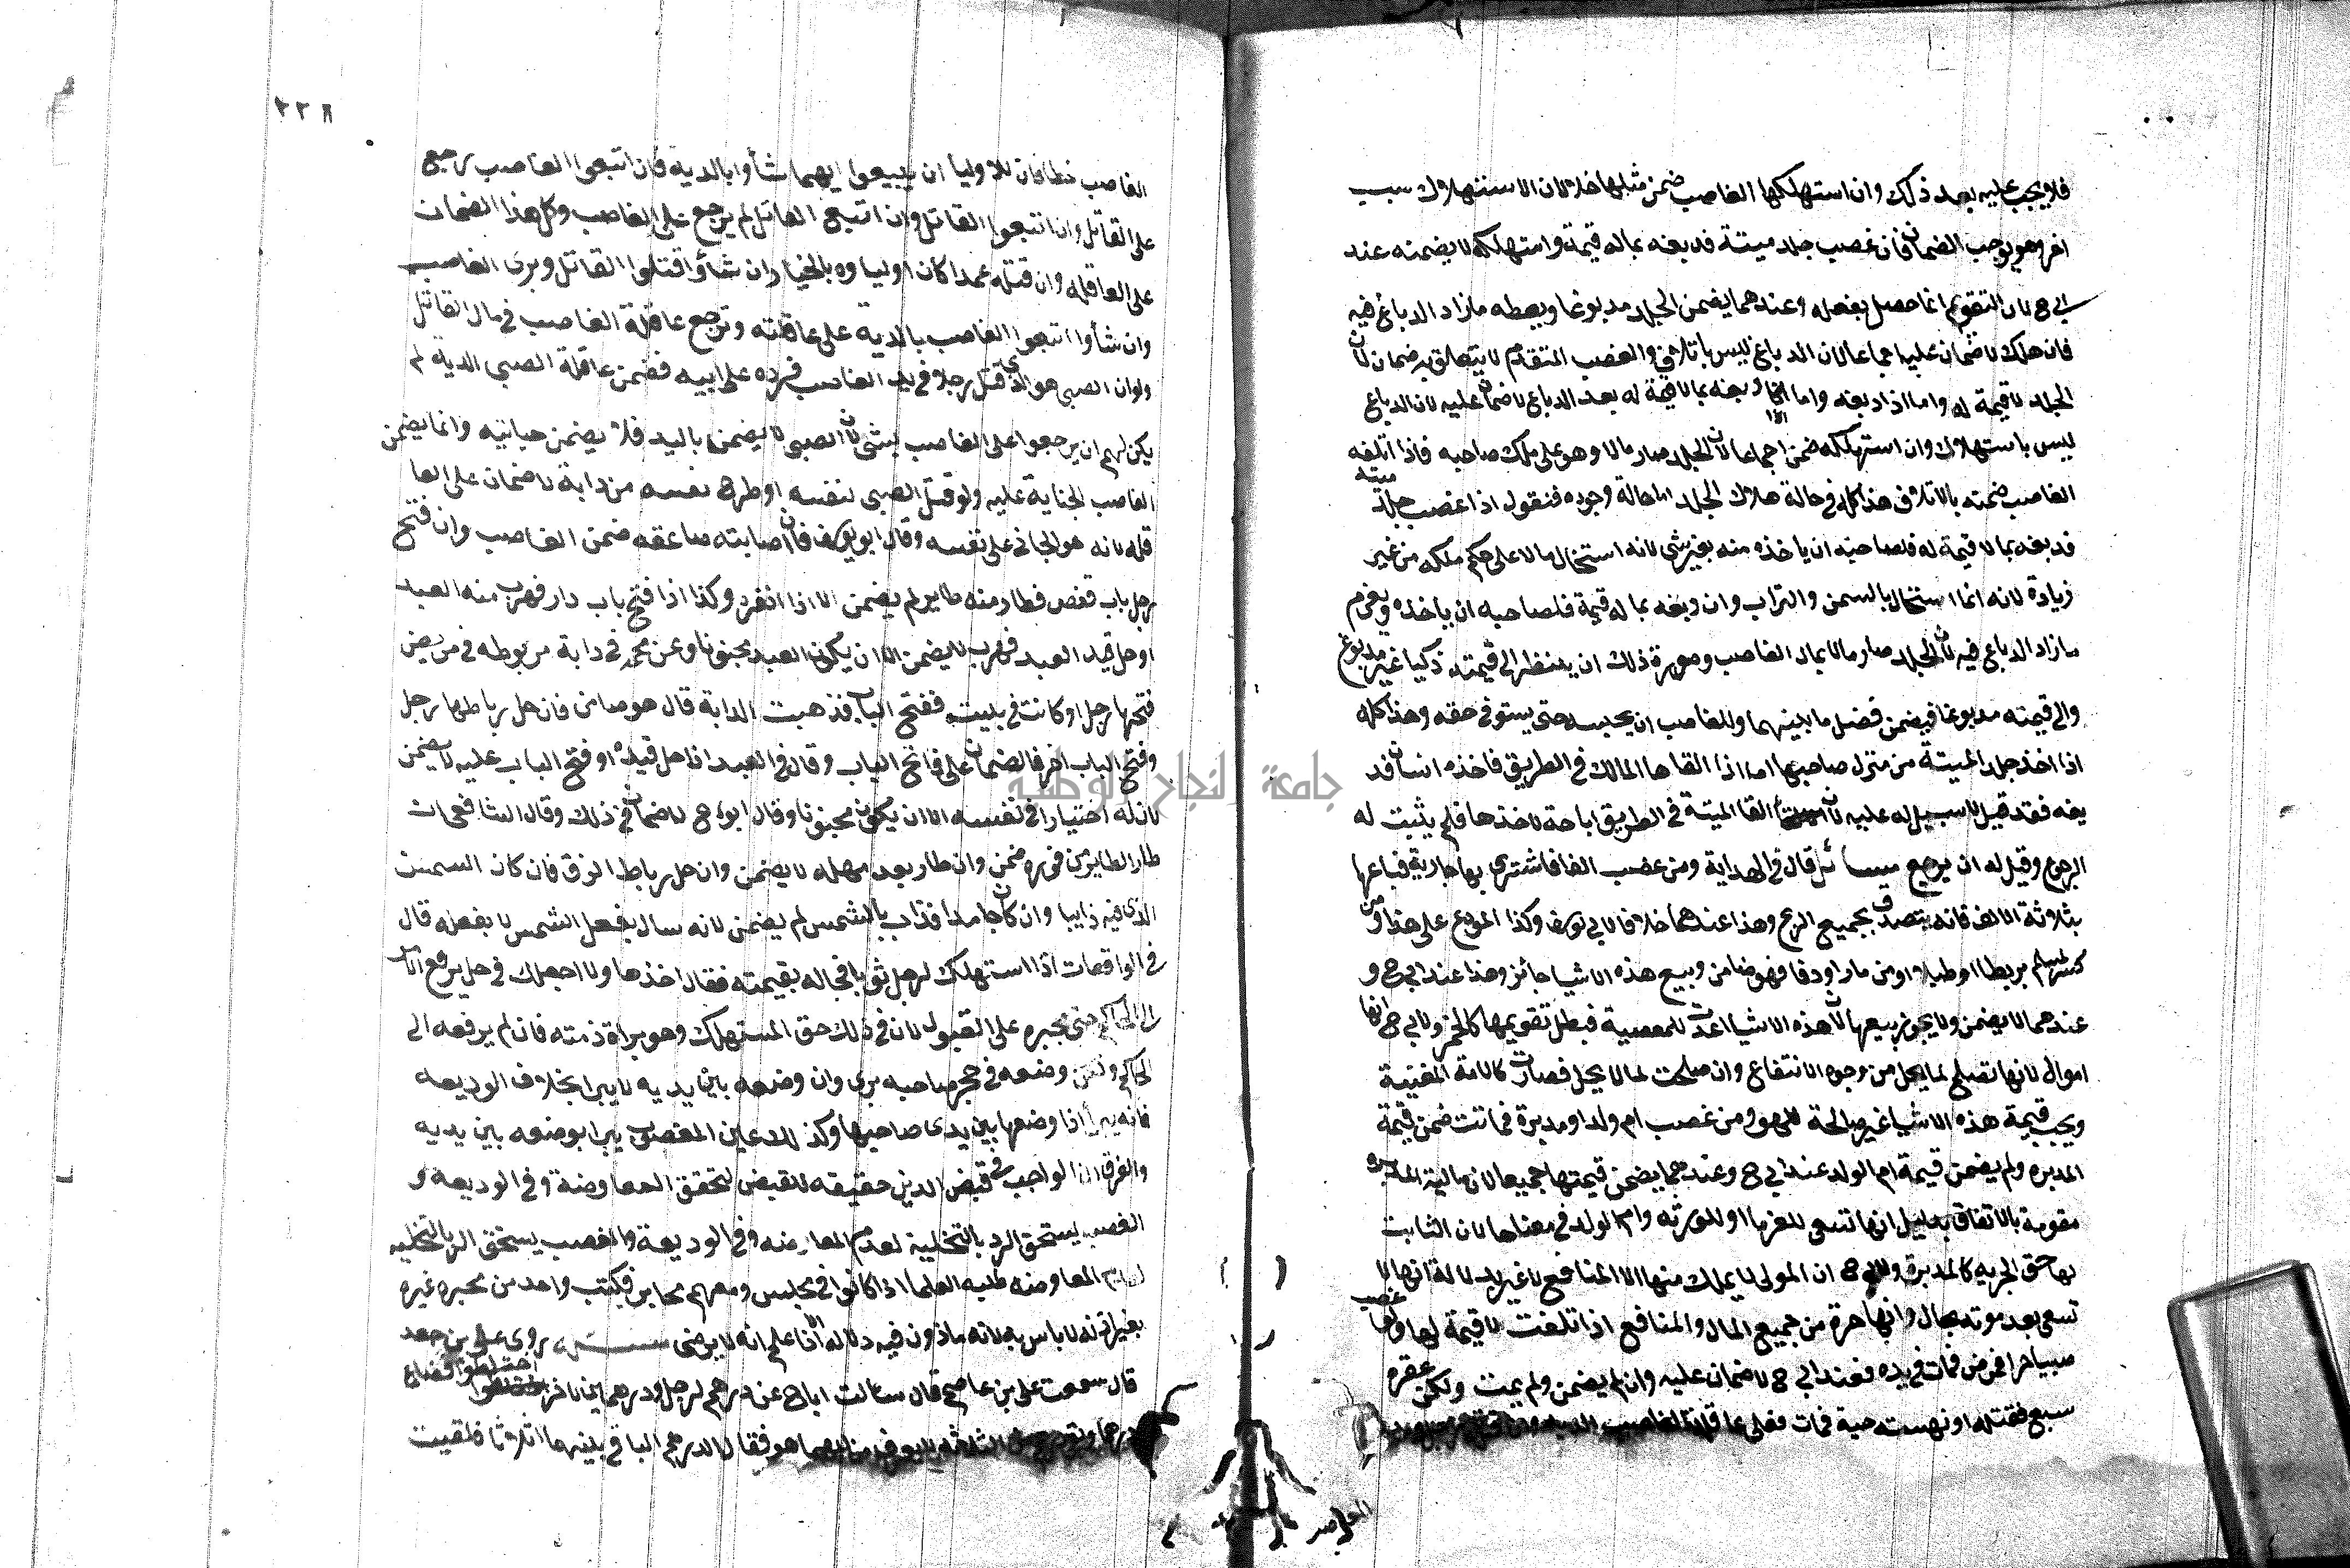 فلا يجب عليه بعد ذلك وان استهلكها الغاصب ضمن مثلها خلا لان الاستهلاك سبب
اخر وهو يوجب الضمان فان غصب جلد ميتة فدبغه بماله قيمة واستهلكه لا يضمنه عند
ابي ح لان التقويم انما حصل بفعله وعندهما يضمن الجلد مدبوغا ويعطه ما زاد الدباغ فيه
فان هلك لا ضمان عليه اجماعا لان الدباغ ليس باتلاف والغصب المتقدم لا يتعلق به ضمان لان
الجلد لا قيمة له واما اذا دبغه بما لا قيمة له بعد الدباغ لا ضمان عليه لان الدباغ
ليس باستهلاك وان استهلكه ضمن اجماعا لان الجلد صار مالا وهو على ملك صاحبه فاذا اتلفه
الغاصب ضمنه بالاتلاف هذا كله في حالة هلاك الجلد اما حالة وجوده فنقول اذا غصب جلد ميتة
فدبغه بما لا قيمة له فلصاحبه ان ياخذه منه بغير شي لانه استحال مالا على حكم ملكه من غير
زيادة لانه انما استحال بالشمس والتراب وان دبغه بما له قيمة فلصاحبه ان ياخذه ويغرم
ما زاد الدباغ فيه لان الجلد صار مالا بمال الغاصب وصورة ذلك ان ينظر الى قيمته ذكيا غير مدبوغ
والى قيمته مدبوغا فيضمن فضل ما بينهما وللغاصب ان يحبسه حتى يستوفي حقه وهذا كله
اذا اخذ جلد الميتة من منزل صاحبها اما اذا القاها المالك في الطريق فاخذه انسان فد
بغه فقد قيل لا سبيل له عليه لان القا الميتة في الطريق اباحة لاخذها فلم يثبت له
الرجوع وقيل له ان يرجع مسائل قال في الهداية ومن غصب الفا فاشترى بها جارية فباعها
بثلاثة الالف فانه يتصدق بجميع الربح وهذا عندهما خلافا لابي يوسف وكذا المودع على هذا ومن
كسر لمسلم بربطا او طبلا او مزمارا او دفا فهو ضامن وبيع هذه الاشيا جائز وهذا عند ابي ح و
عندهما لا يضمن ولا يجوز بيعها لان هذه الاشيا اعدت للمعصية فبطل تقومها كالخمر ولابي ح انها
اموال لانها تصلح لما يحل من وجوه الانتفاع وان صلحت لما لا يحل فصارت كالامة المغنية
ويجب قيمة هذه الاشيا غير صالحة للهو ومن غصب ام ولد او مدبرة فماتت ضمن قيمة
المدبره ولم يضمن قيمة ام الولد عند ابي ح وعندهما يضمن قيمتها جميعا لان مالية المدبره
مقومة بالاتفاق بدليل انها تسعى للغرما او للورثه وام الولد في معناها لان الثابت
بها حق الحريه كالمدبرة ولابي ح ان المولى لا يملك منها الا المنافع لا غير بدلالة انها لا
تسعى بعد موته بحال وانها حرة من جميع المال والمنافع اذا تلفت لا قيمة لها ولو غصب
صبيا حرا فمرض فمات في يده فعند ابي ح لا ضمان عليه وان لم يضمن ولم يمت ولكن عقره
سبع فقتله او نهسته حية فمات فعلى عاقلة الغاصب الدية
الغاصب
٢٢٨
الغاصب خطا فان للاوليا ان يتبعوا ايهما شأوا بالدية فان اتبعوا الغاصب رجع
على القاتل وان اتبعوا القاتل لم يرجع على الغاصب وكل هذا الضمان
على العاقله وان قتله عمدا كان اولياوه بالخيار ان شأوا قتلوا القاتل وبرى الغاصب
وان شأوا اتبعوا الغاصب بالدية على عاقلته وترجع عاقلة الغاصب في مال القاتل
ولو ان الصبي هو الذي قتل رجلا في يد الغاصب فرده على ابيه فضمن عاقلة الصبي الدية لم
يكن لهم ان يرجعوا على الغاصب بشى لان الصبى لا يضمن باليد فلا يضمن جنايته وانما يضمن
الغاصب الجناية عليه ولو قتل الصبى نفسه او طرح نفسه من دابة لا ضمان على العا
قله لانه هو الجاني على نفسه وقال ابو يوسف فان اصابته صاعقه ضمن الغاصب وان فتح
رجل باب قفص فطار منه طاير لم يضمن الا اذا انفره وكذا اذا فتح باب دار فهرب منه العبد
او حل قيد العبد فهرب لا يضمن الا ان يكون العبد مجنونا وعن محمد في دابة مربوطه في مربض
فتحها رجل او كانت في بيت ففتح الباب فذهبت الدابة قال هو ضامن فان حل رباطها رجل
وفتح الباب اخر فالضمان على فاتح الباب وقال في العبد اذا حل قيده او فتح الباب عليه لا يضمن
لان له اختيارا في نفسه الا ان يكون مجنونا وقال ابو ح لا ضمان في ذلك وقال الشافعى ان
طار الطاير من فوره ضمن وان طار بعد مهله لا يضمن وان حل رباط الزق فان كان السمن
الذى فيه ذايبا وان كان جامدا فذاب بالشمس لم يضمن لانه سال بفعل الشمس لا بفعله قال
في الواقعات اذا استهلك لرجل ثوبا فجاله بقيمته فقال اخذها ولا اجعلك في حل يرفع الامر
الى الحاكم حتى يجبره على القبول لان في ذلك حق المستهلك وهو براة ذمته فان لم يرفعه الى
الحاكم ولكن وضعه في حجر صاحبه برى وان وضعه بين يديه لا يبرا بخلاف الوديعه
فانه يبرأ اذا وضعها بين يدى صاحبها وكذلك عين المغصوب يبرا بوضعه بين يديه
والفرق ان الواجب في قبض الدين حقيقه القبض لتحقق المعاوضة وفي الوديعه و
الغصب يستحق الرد بالتخلية لعدم المعاوضه وفي الوديعة والغصب يستحق الرد بالتخليه
لعدم المعاوضه طلبه العلما اذا كانوا في مجلس ومعهم محابر فكتب واحد من محبره غيره
بغير اذنه لا باس به لانه ماذون فيه دلاله الا اذا علم انه لا يرضى روى على بن جعد
قال سمعت على بن عاصم قال سالت ابا ح عن درهم لرجل ودرهمين لاخر اختلطوا فضاع
درهمان وبقي درهم من الثلثة فقال الدرهم الباقي بينهما اثلاثا فلقيت
جامعة النجاح الوطنية